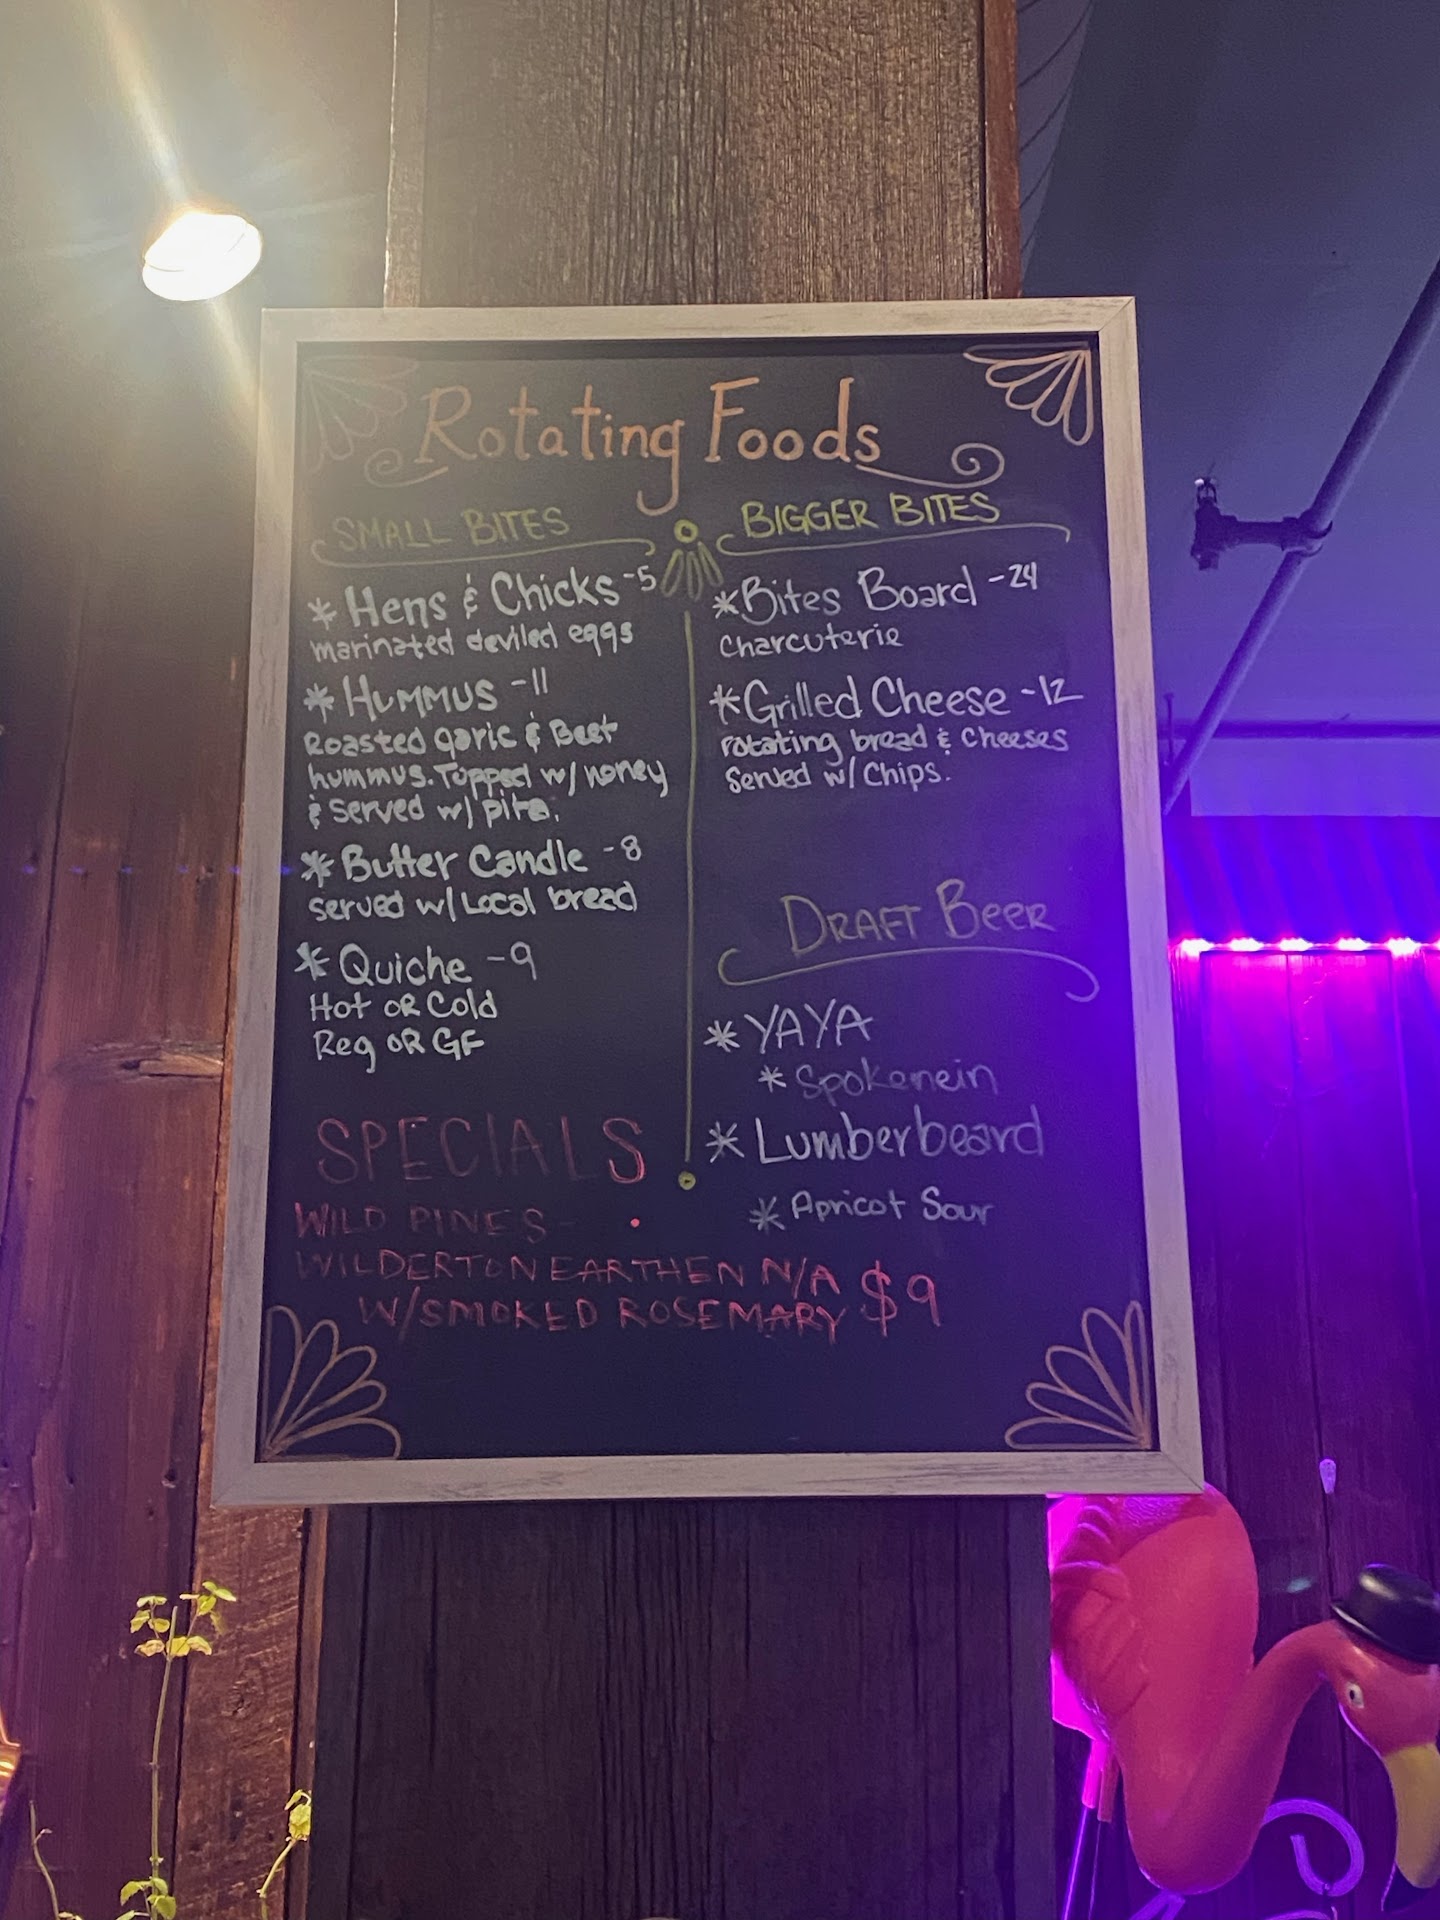 Rotating Foods
SMALL BITES
* Hens & Chicks -5
marinated deviled eggs
* HUMMUS -11
Roasted garlic & Beet
hummus. Topped w/ honey
& served w/ pita.
* Butter Candle -8
served w/ Local bread
* Quiche -9
Hot OR Cold
Reg OR GF
BIGGER BITES
* Bites Board -24
Charcuterie
* Grilled Cheese -12
rotating bread & cheeses
Served w/ Chips.
DRAFT BEER
* YAYA
* Spokenein
* Lumberbeard
* Apricot Sour
SPECIALS
WILD PINES -
WILDERTON EARTHEN N/A
W/SMOKED ROSEMARY $9